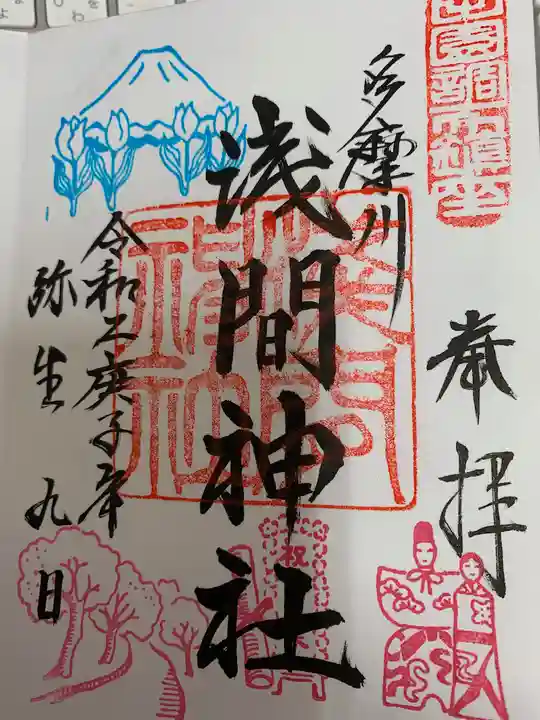 奉拝
多摩川
浅間神社
令和二庚子年
弥生九日
祝